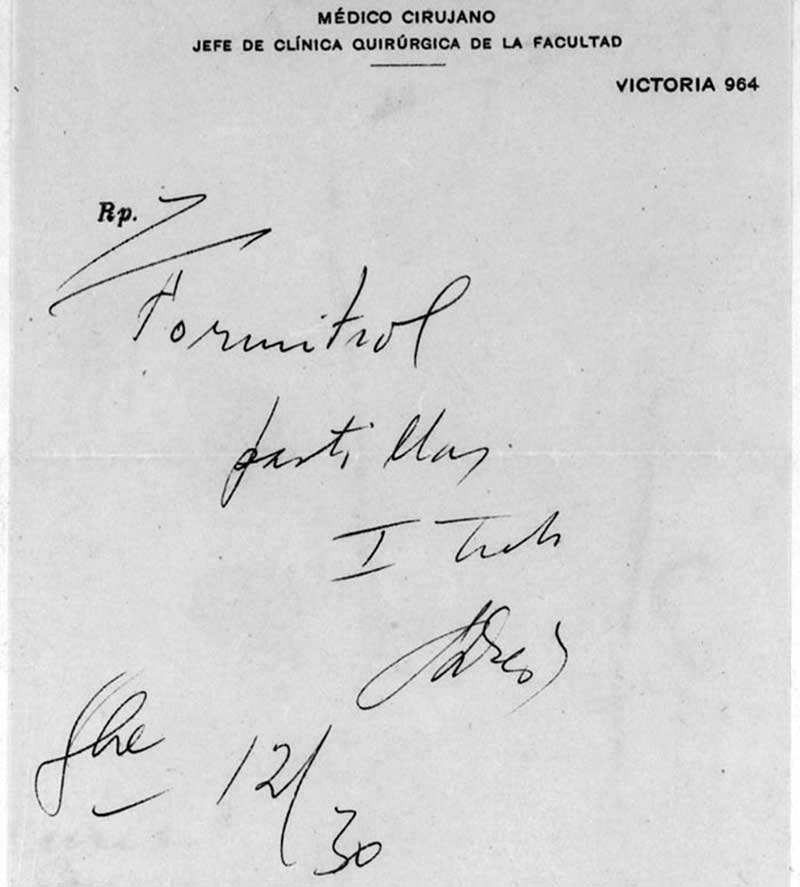 MÉDICO CIRUJANO
JEFE DE CLÍNICA QUIRÚRGICA DE LA FACULTAD
VICTORIA 964
Rp.
Formitrol
pastillas
I Tubo
8bre 12/30